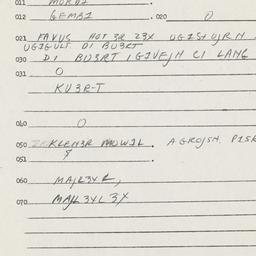 011 MURDI
012 GEMBI . 020 0
021 FAVUS HOT 3R 23X UGIStUJRN
UGIGULT DI BU3RT
030 DI BU3RT IGIVEJN CI LANG
031 0
KU3R-T
060 0
050 KLEM3R MUWIL. AGROJSN. PISK
051 .
060 MAJL3YL,
070 MAJL3YL3X